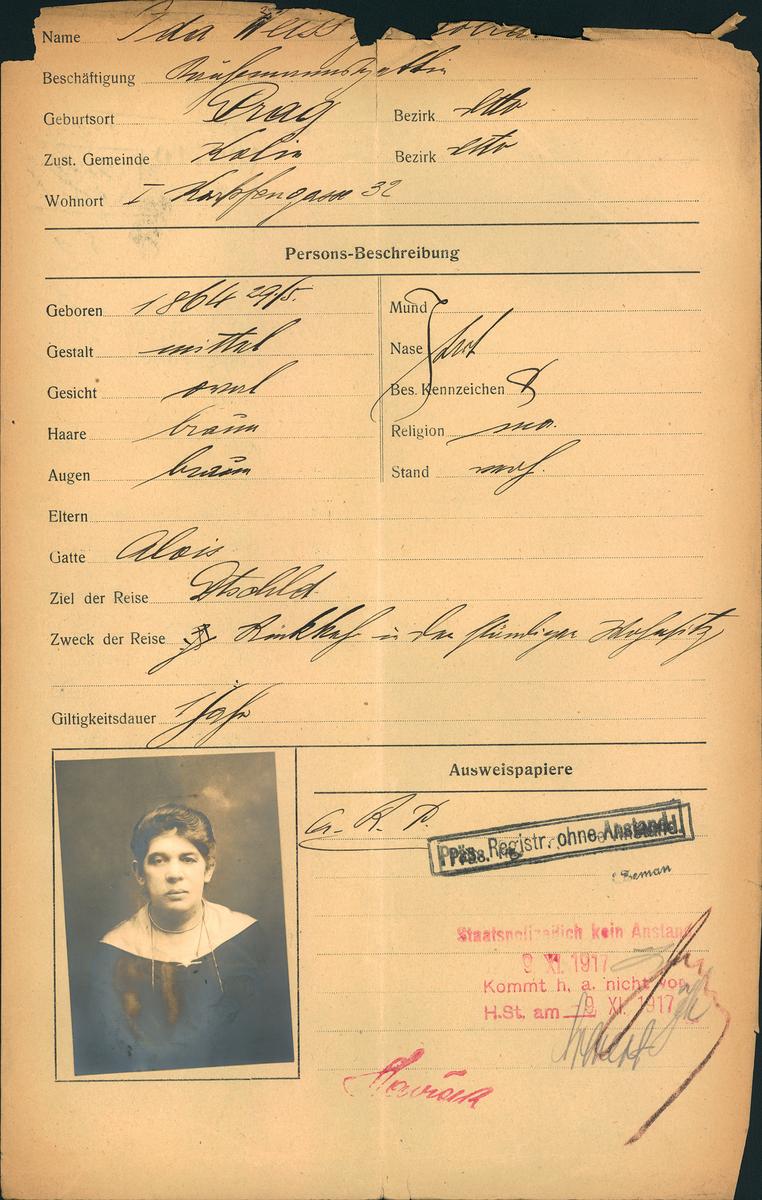 Name Ida Weiss
Beschäftigung Kaufmannsgattin
Geburtsort Prag Bezirk dtto
Zust. Gemeinde Kolin Bezirk dtto
Wohnort I Karpfengasse 32
Persons-Beschreibung
Geboren 1864 29/5.
Gestalt mittel
Gesicht oval
Haare braun
Augen braun
Mund
Nase
Bes. Kennzeichen
Religion mo.
Stand verh.
Eltern
Gatte Alois
Ziel der Reise Dtschld.
Zweck der Reise Rückkehr in den ständigen Wohnsitz
Giltigkeitsdauer 1 Jahr
Ausweispapiere
a. R. P.
Präs. Registr. ohne Anstand.
Zeman
Staatspolizeilich kein Anstand
9 XI. 1917
Kommt h. a. nicht vor
H.St. am 9 XI. 1917